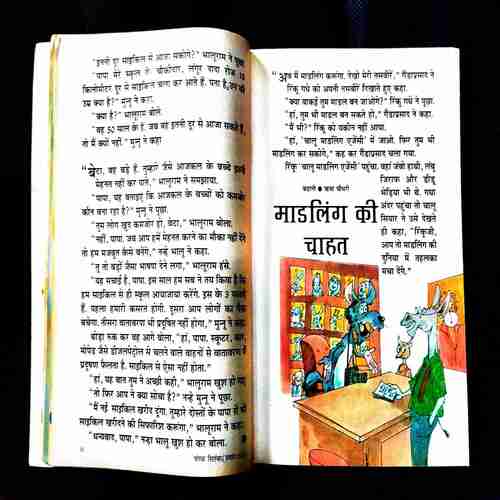 "इतनी दूर साइकिल में आ सकोगे?" भालूराम ने पूछा.
"पापा मेरे स्कूल के चौकीदार, लंगूर दादा रोज 10
किलोमीटर दूर से साइकिल चला कर आते हैं. पता है, उन की
उम्र क्या है?" मुनू ने कहा.
"क्या है?" भालूराम बोले.
"वह 50 साल के हैं. जब वह इतनी दूर से आ जा सकते हैं,
तो मैं क्यों नहीं?"
"बेटा, वह बड़े हैं. तुम्हारे जैसे आजकल के बच्चे इतनी
मेहनत नहीं कर पाते," भालूराम ने समझाया.
"पापा, यह बताइए कि आजकल के बच्चों को कमजोर
कौन बना रहा है?" मुनू ने पूछा.
"तुम लोग खुद कमजोर हो, बेटा," भालूराम बोला.
"नहीं, पापा. जब आप हमें मेहनत करने का मौका नहीं देंगे
तो हम मजबूत कैसे बनेंगे," नन्हे भालू ने कहा.
"तू तो बड़ों जैसा भाषण देने लगा," भालूराम हंसे.
"यह सचाई है, पापा. इस साल हम सब ने तय किया है कि
हम साइकिल से ही स्कूल आयाजाया करेंगे. इस के 3 फायदे
हैं. पहला हमारी कसरत होगी. दूसरा आप लोगों का पैसा
बचेगा. तीसरा वातावरण भी प्रदूषित नहीं होगा," मुनू ने कहा.
थोड़ा रुक कर वह आगे बोला, "हां, पापा. स्कूटर, कार,
मोपेड जैसे डीजलपेट्रोल से चलने वाले वाहनों से वातावरण में
प्रदूषण फैलता है. साइकिल में ऐसा नहीं होता."
"हां, यह बात तुम ने अच्छी कही," भालूराम खुश हो गए.
"तो फिर आप ने क्या सोचा है?" नन्हे मुनू ने पूछा.
"मैं नई साइकिल खरीद दूंगा. तुम्हारे दोस्तों के पापा से भी
साइकिल खरीदने की सिफारिश करूंगा," भालूराम ने कहा.
"धन्यवाद, पापा," नन्हा भालू खुश हो कर बोला.
"अब मैं माडलिंग करूंगा. देखो मेरी तसवीरें," गैंडाप्रसाद ने
रिंकू गधे को अपनी तसवीरें दिखाते हुए कहा.
"क्या वाकई तुम माडल बन जाओगे?" रिंकू गधे ने पूछा.
"हां, तुम भी माडल बन सकते हो," गैंडाप्रसाद ने कहा.
"मैं भी?" रिंकू को यकीन नहीं आया.
"हां, 'चालू माडलिंग एजेंसी' में जाओ. फिर तुम भी
माडलिंग कर सकोगे," कह कर गैंडाप्रसाद चला गया.
रिंकू 'चालू माडलिंग एजेंसी' पहुंचा. वहां जंबो हाथी, लंबू
जिराफ और डींडू
भेड़िया भी थे. गधा
अंदर पहुंचा तो चालू
सियार ने उसे देखते
ही कहा, "रिंकूजी,
आप तो माडलिंग की
दुनिया में तहलका
मचा देंगे."
कहानी • चौधरी
माडलिंग की
चाहत